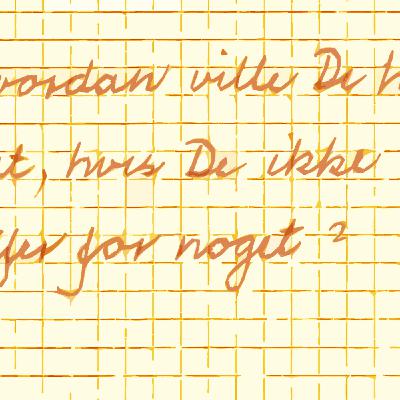 vordan ville De
hvis De ikke
for noget ?